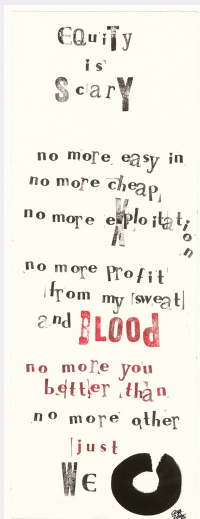 EQuiTy
is
ScarY
no more easy in
no more cheap,
no more eXploitation
no more Profit
from my sweat
and BLOOd
no more you
better than
no more other
just
WE